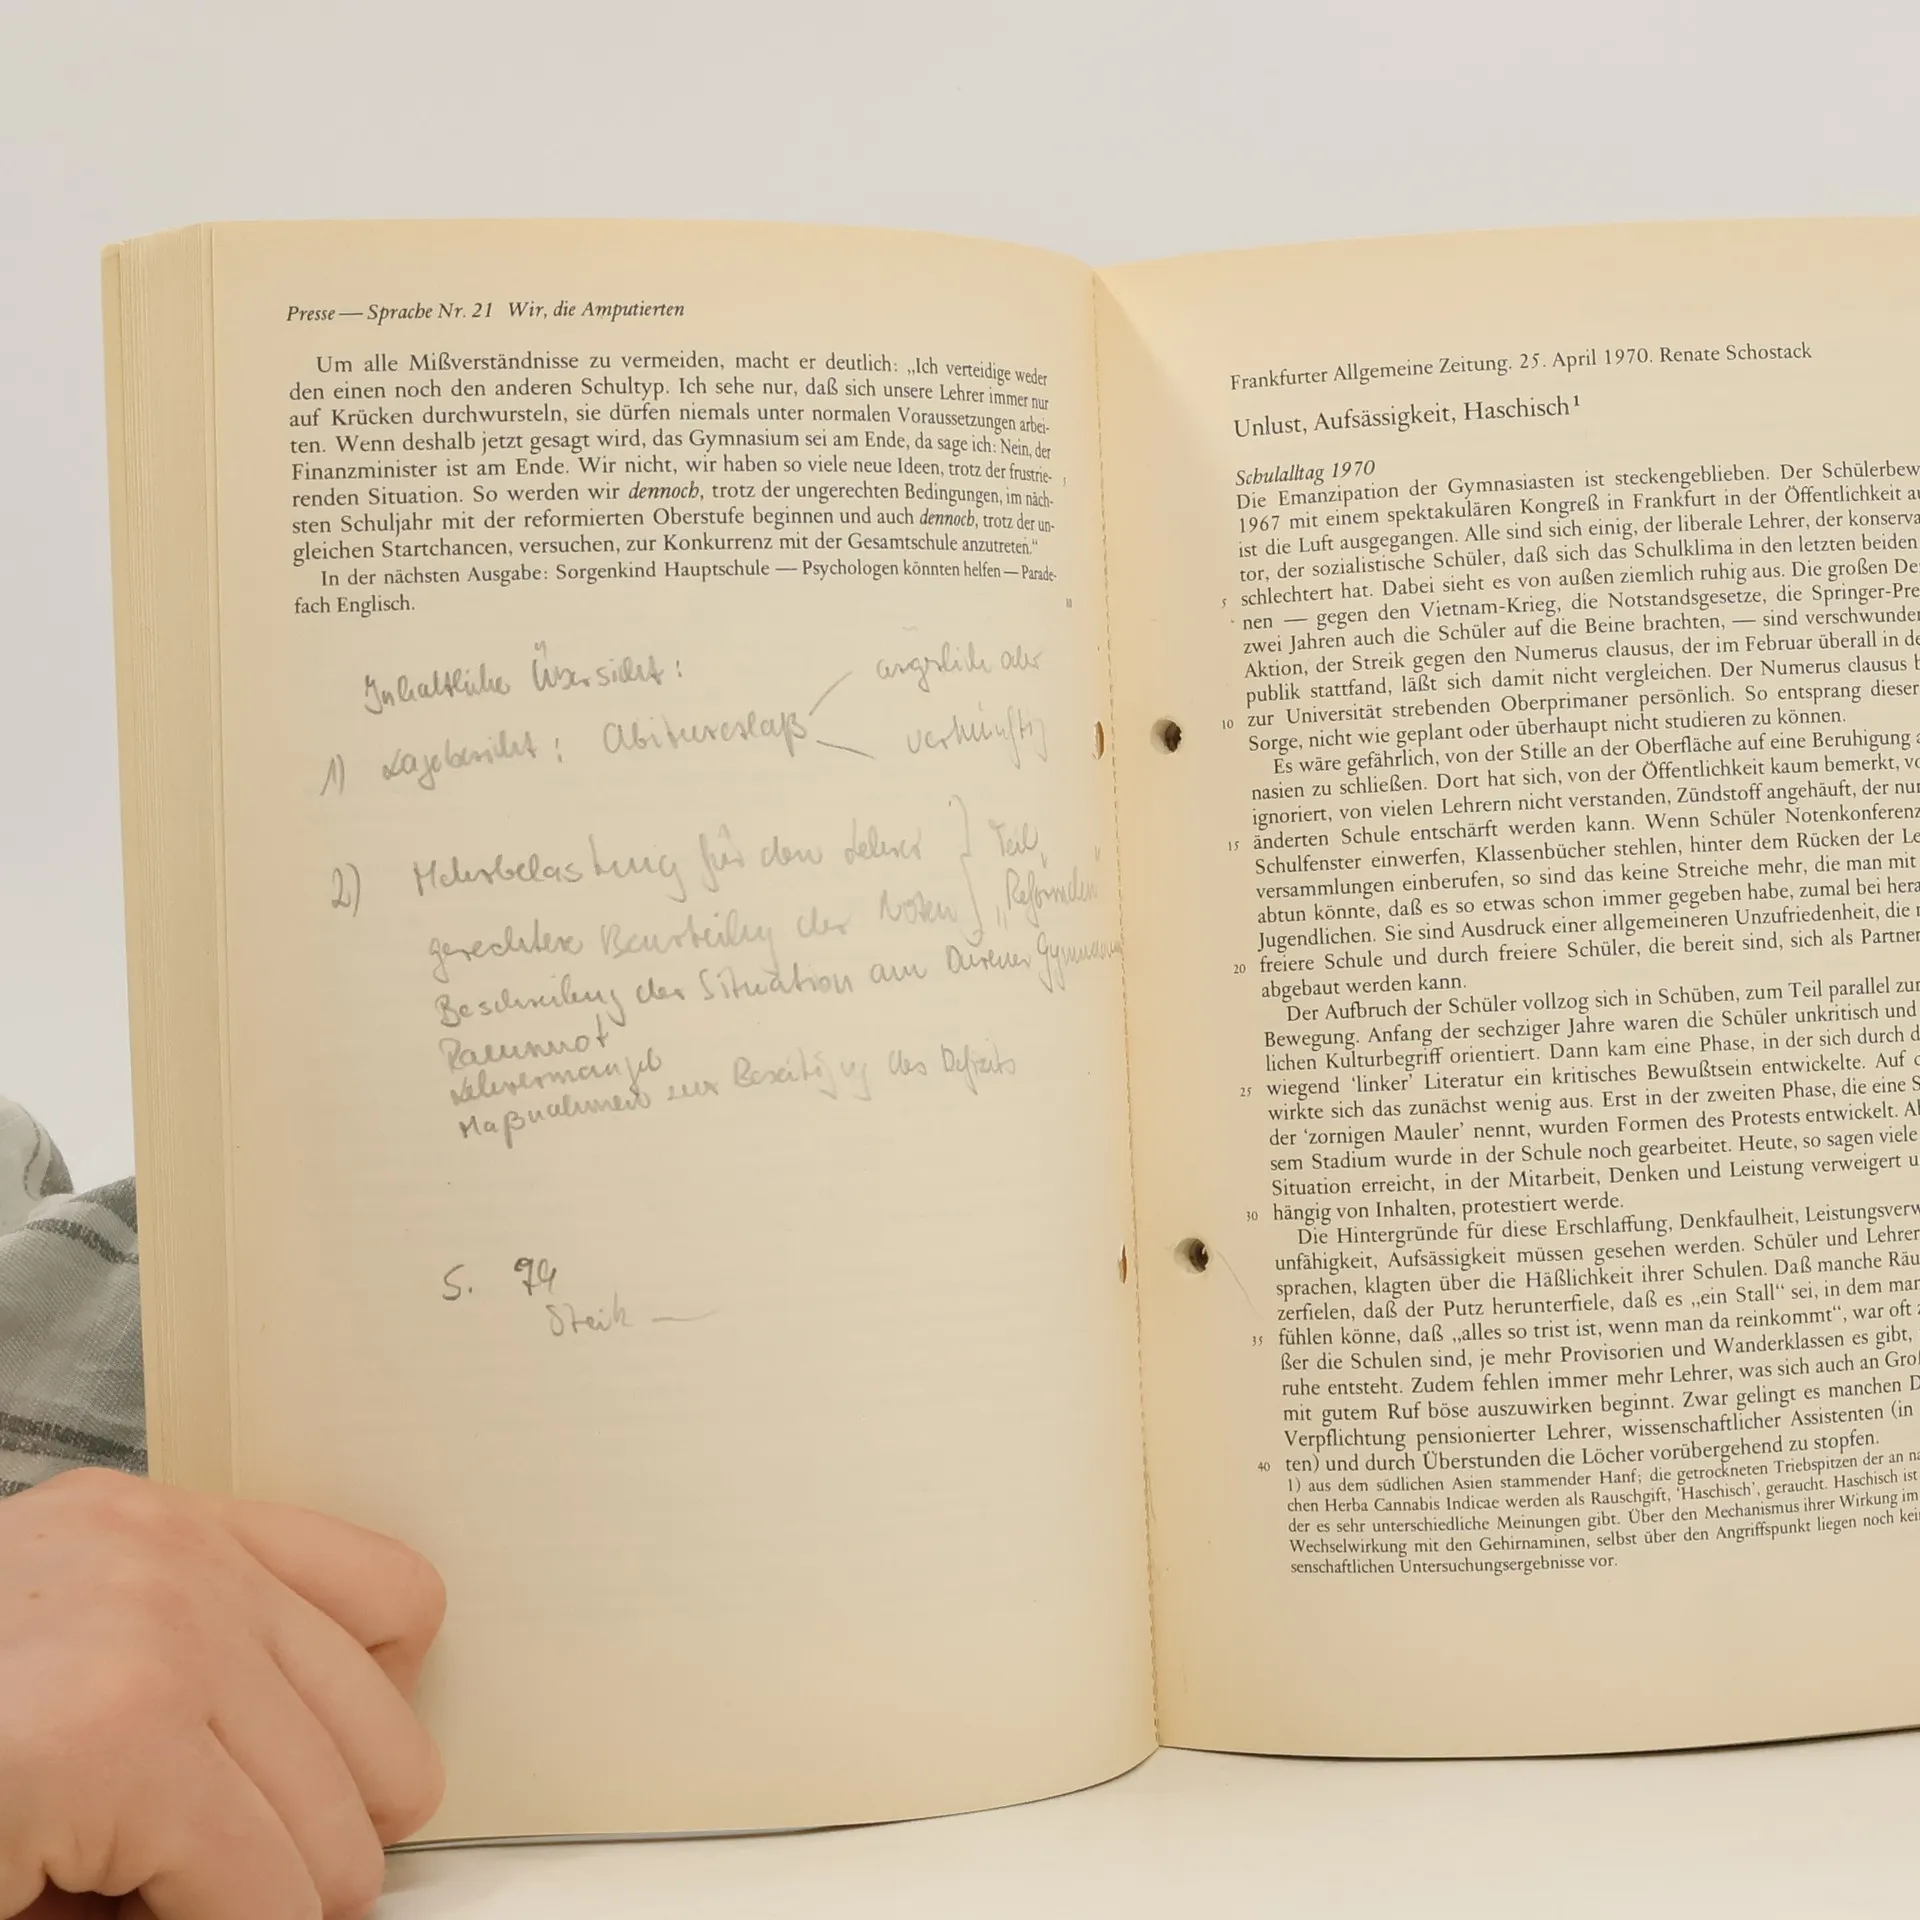 Presse — Sprache Nr. 21 Wir, die Amputierten
Um alle Mißverständnisse zu vermeiden, macht er deutlich: „Ich verteidige weder
den einen noch den anderen Schultyp. Ich sehe nur, daß sich unsere Lehrer immer nur
auf Krücken durchwursteln, sie dürfen niemals unter normalen Voraussetzungen arbei-
ten. Wenn deshalb jetzt gesagt wird, das Gymnasium sei am Ende, da sage ich: Nein, der
Finanzminister ist am Ende. Wir nicht, wir haben so viele neue Ideen, trotz der frustrie-
renden Situation. So werden wir dennoch, trotz der ungerechten Bedingungen, im näch-
sten Schuljahr mit der reformierten Oberstufe beginnen und auch dennoch, trotz der un-
gleichen Startchancen, versuchen, zur Konkurrenz mit der Gesamtschule anzutreten."
In der nächsten Ausgabe: Sorgenkind Hauptschule — Psychologen könnten helfen — Parade-
fach Englisch.
10
Inhaltliche Übersicht:
1) Lagebericht: Abiturerlaß
ärgerlich oder
vernünftig
2) Mehrbelastung für den Lehrer } Teil
gerechtere Beurteilung der Noten „Reformden"
Beschreibung der Situation am Dürener Gymnasium
Raumnot
Lehrermangel
Maßnahmen zur Beseitigung des Defizits
S. 74
Streik —
Frankfurter Allgemeine Zeitung. 25. April 1970. Renate Schostack
Unlust, Aufsässigkeit, Haschisch¹
Schulalltag 1970
Die Emanzipation der Gymnasiasten ist steckengeblieben. Der Schülerbew
1967 mit einem spektakulären Kongreß in Frankfurt in der Öffentlichkeit au
ist die Luft ausgegangen. Alle sind sich einig, der liberale Lehrer, der konserva
tor, der sozialistische Schüler, daß sich das Schulklima in den letzten beiden
5 schlechtert hat. Dabei sieht es von außen ziemlich ruhig aus. Die großen De
nen — gegen den Vietnam-Krieg, die Notstandsgesetze, die Springer-Pre
zwei Jahren auch die Schüler auf die Beine brachten, — sind verschwunden
Aktion, der Streik gegen den Numerus clausus, der im Februar überall in de
publik stattfand, läßt sich damit nicht vergleichen. Der Numerus clausus b
10 zur Universität strebenden Oberprimaner persönlich. So entsprang dieser
Sorge, nicht wie geplant oder überhaupt nicht studieren zu können.
Es wäre gefährlich, von der Stille an der Oberfläche auf eine Beruhigung a
nasien zu schließen. Dort hat sich, von der Öffentlichkeit kaum bemerkt, vo
ignoriert, von vielen Lehrern nicht verstanden, Zündstoff angehäuft, der nur
15 änderten Schule entschärft werden kann. Wenn Schüler Notenkonferenz
Schulfenster einwerfen, Klassenbücher stehlen, hinter dem Rücken der Le
versammlungen einberufen, so sind das keine Streiche mehr, die man mit
abtun könnte, daß es so etwas schon immer gegeben habe, zumal bei hera
Jugendlichen. Sie sind Ausdruck einer allgemeineren Unzufriedenheit, die n
20 freiere Schule und durch freiere Schüler, die bereit sind, sich als Partner
abgebaut werden kann.
Der Aufbruch der Schüler vollzog sich in Schüben, zum Teil parallel zur
Bewegung. Anfang der sechziger Jahre waren die Schüler unkritisch und
lichen Kulturbegriff orientiert. Dann kam eine Phase, in der sich durch d
25 wiegend 'linker' Literatur ein kritisches Bewußtsein entwickelte. Auf d
wirkte sich das zunächst wenig aus. Erst in der zweiten Phase, die eine S
der 'zornigen Mauler' nennt, wurden Formen des Protests entwickelt. Ab
sem Stadium wurde in der Schule noch gearbeitet. Heute, so sagen viele
Situation erreicht, in der Mitarbeit, Denken und Leistung verweigert u
30 hängig von Inhalten, protestiert werde.
Die Hintergründe für diese Erschlaffung, Denkfaulheit, Leistungsverw
unfähigkeit, Aufsässigkeit müssen gesehen werden. Schüler und Lehrer
sprachen, klagten über die Häßlichkeit ihrer Schulen. Daß manche Räu
zerfielen, daß der Putz herunterfiele, daß es „ein Stall" sei, in dem man
35 fühlen könne, daß „alles so trist ist, wenn man da reinkommt", war oft z
ßer die Schulen sind, je mehr Provisorien und Wanderklassen es gibt,
ruhe entsteht. Zudem fehlen immer mehr Lehrer, was sich auch an Groß
mit gutem Ruf böse auszuwirken beginnt. Zwar gelingt es manchen D
Verpflichtung pensionierter Lehrer, wissenschaftlicher Assistenten (in
40 ten) und durch Überstunden die Löcher vorübergehend zu stopfen.
1) aus dem südlichen Asien stammender Hanf; die getrockneten Triebspitzen der an na
chen Herba Cannabis Indicae werden als Rauschgift, 'Haschisch', geraucht. Haschisch ist
der es sehr unterschiedliche Meinungen gibt. Über den Mechanismus ihrer Wirkung im
Wechselwirkung mit den Gehirnaminen, selbst über den Angriffspunkt liegen noch kei
senschaftlichen Untersuchungsergebnisse vor.